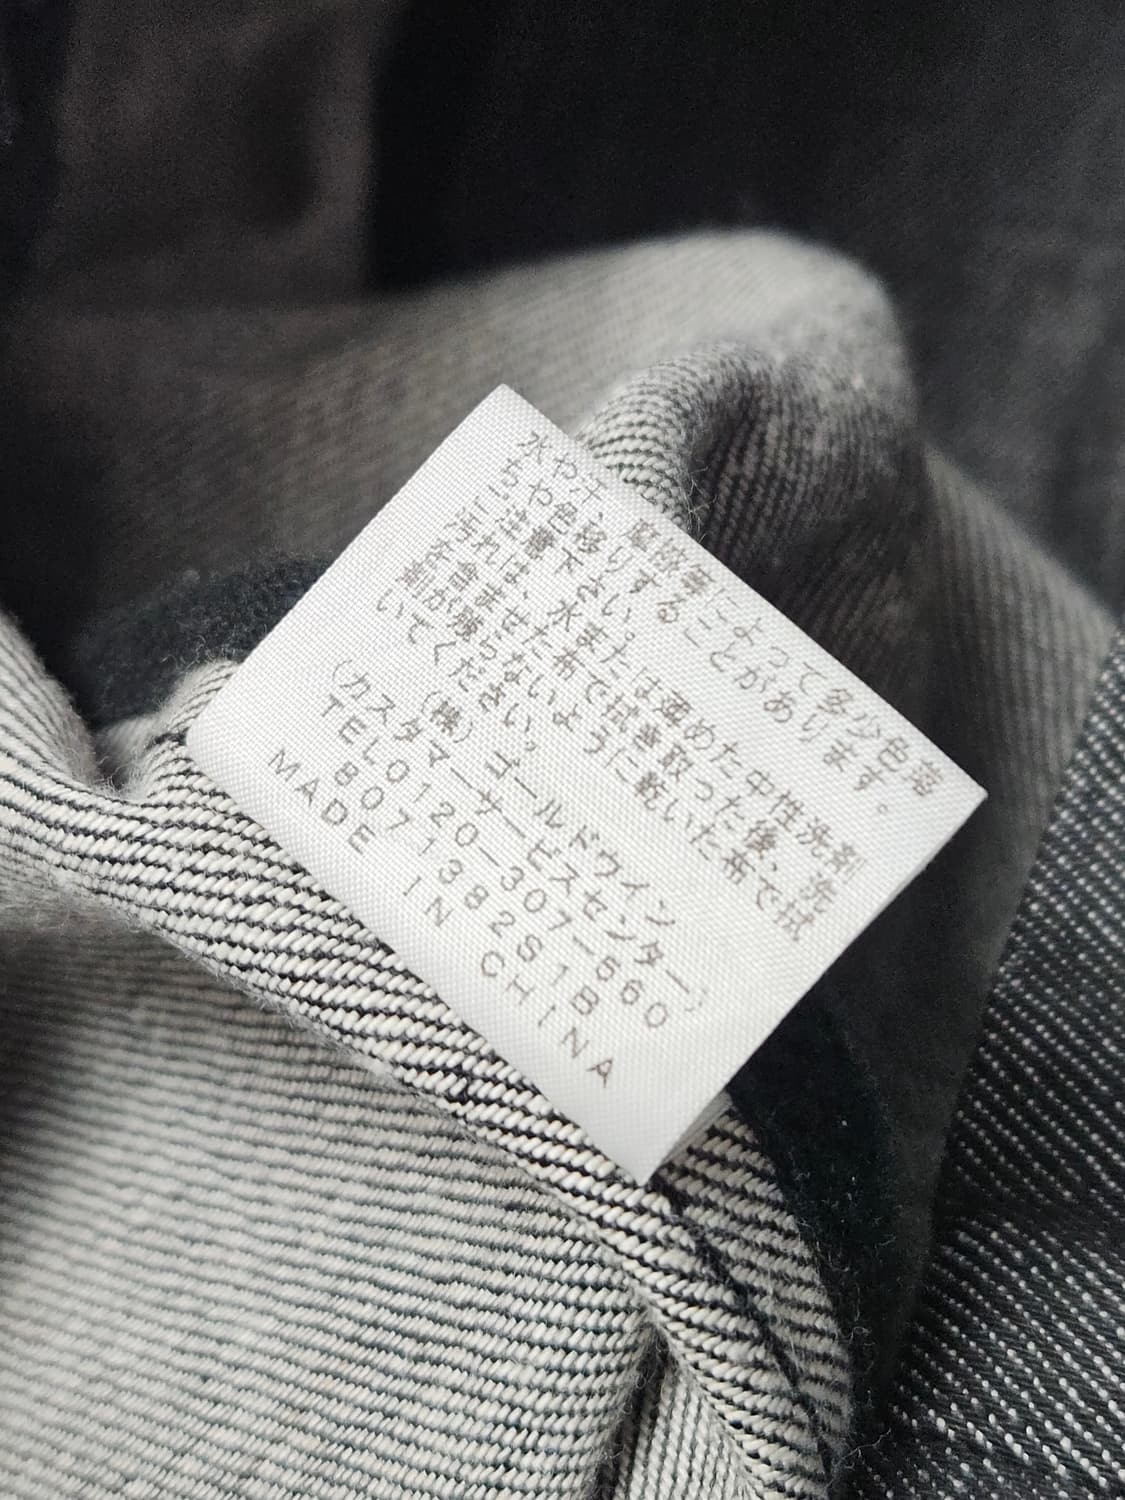 水や汗、摩擦等によって多少色落
ちや色移りすることがあります。
ご注意下さい。
汚れは、水または薄めた中性洗剤
を含ませた布で拭き取った後、洗
剤が残らないように乾いた布で拭
いてください。
(株)ゴールドウイン
(カスタマーサービスセンター)
TEL0120-307-560
8071382S1B
MADE IN CHINA